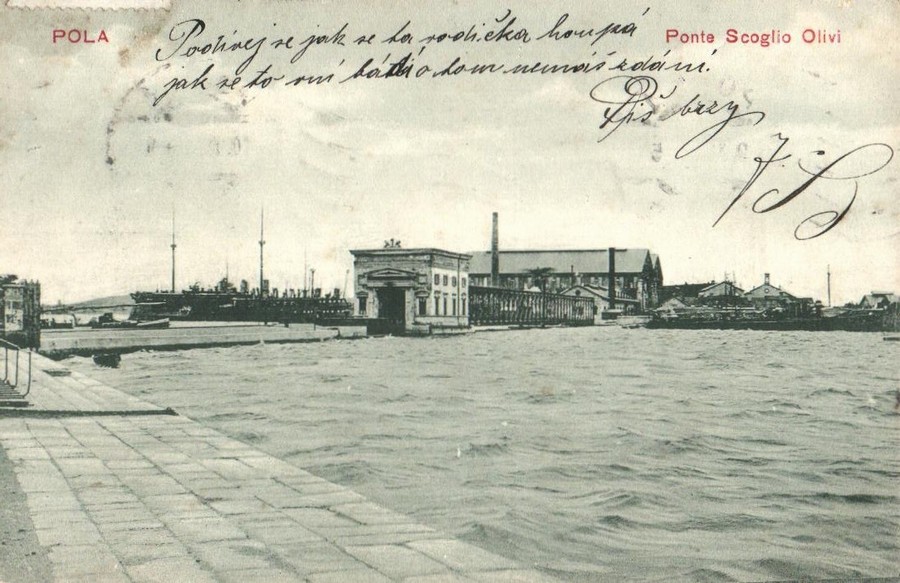 POLA
Ponte Scoglio Olivi
Podívej se jak se ta vodička houpá
jak se to víní o tom nemáš zdání.
Piš brzy